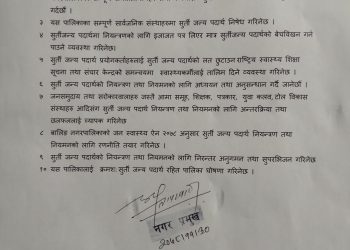 गर्दछौं ।
३ यस पालिकाका सम्पूर्ण सार्वजनिक संस्थाहरुमा सुर्ती जन्य पदार्थ निषेध गरिनेछ ।
४ सुर्तीजन्य पदार्थमा नियन्त्रणको लागि इजाजत पत्र लिएर मात्र सुर्तीजन्य पदार्थको बेचविखन गर्न
पाउने व्यवस्था गरिनेछ।
५ सुर्ती जन्य पदार्थ प्रयोगकर्ताहरुलाई सुर्ती जन्य पदार्थको लत छुटाउन राष्ट्रिय स्वास्थ्य शिक्षा
सूचना तथा संचार केन्द्रको समन्वयमा स्वास्थ्यकर्मीलाई तालिम दिने व्यवस्था गरिनेछ ।
६ सुर्ती जन्य पदार्थको नियन्त्रण तथा नियमनको लागि अध्ययन तथा अनुसन्धान गर्दै जानेछौं ।
७ जनसमुदाय तथा सरोकारवालाहरु जस्तै आमा समूह, शिक्षक, पत्रकार, युवा क्लव, टोल विकास
संस्थाहरु आदिसंग सुर्ती जन्य पदार्थ नियन्त्रण तथा नियमनको लागि अन्तरक्रिया तथा
छलफललाई व्यापक गरिनेछ ।
८ नगरपालिकाको जन स्वास्थ्य ऐन २०७८ अनुसार सुर्ती जन्य पदार्थ नियन्त्रण तथा
नियमनको लागि रणनीति तयार गरिनेछ ।
९ सुर्ती जन्य पदार्थको नियन्त्रण तथा नियमनको लागि निरन्तर अनुगमन तथा सुपरभिजन गरिनेछ ।
१० यस पालिकालाई क्रमशः सुर्ती जन्य पदार्थ रहित पालिका घोषणा गरिनेछ ।
नगर प्रमुख